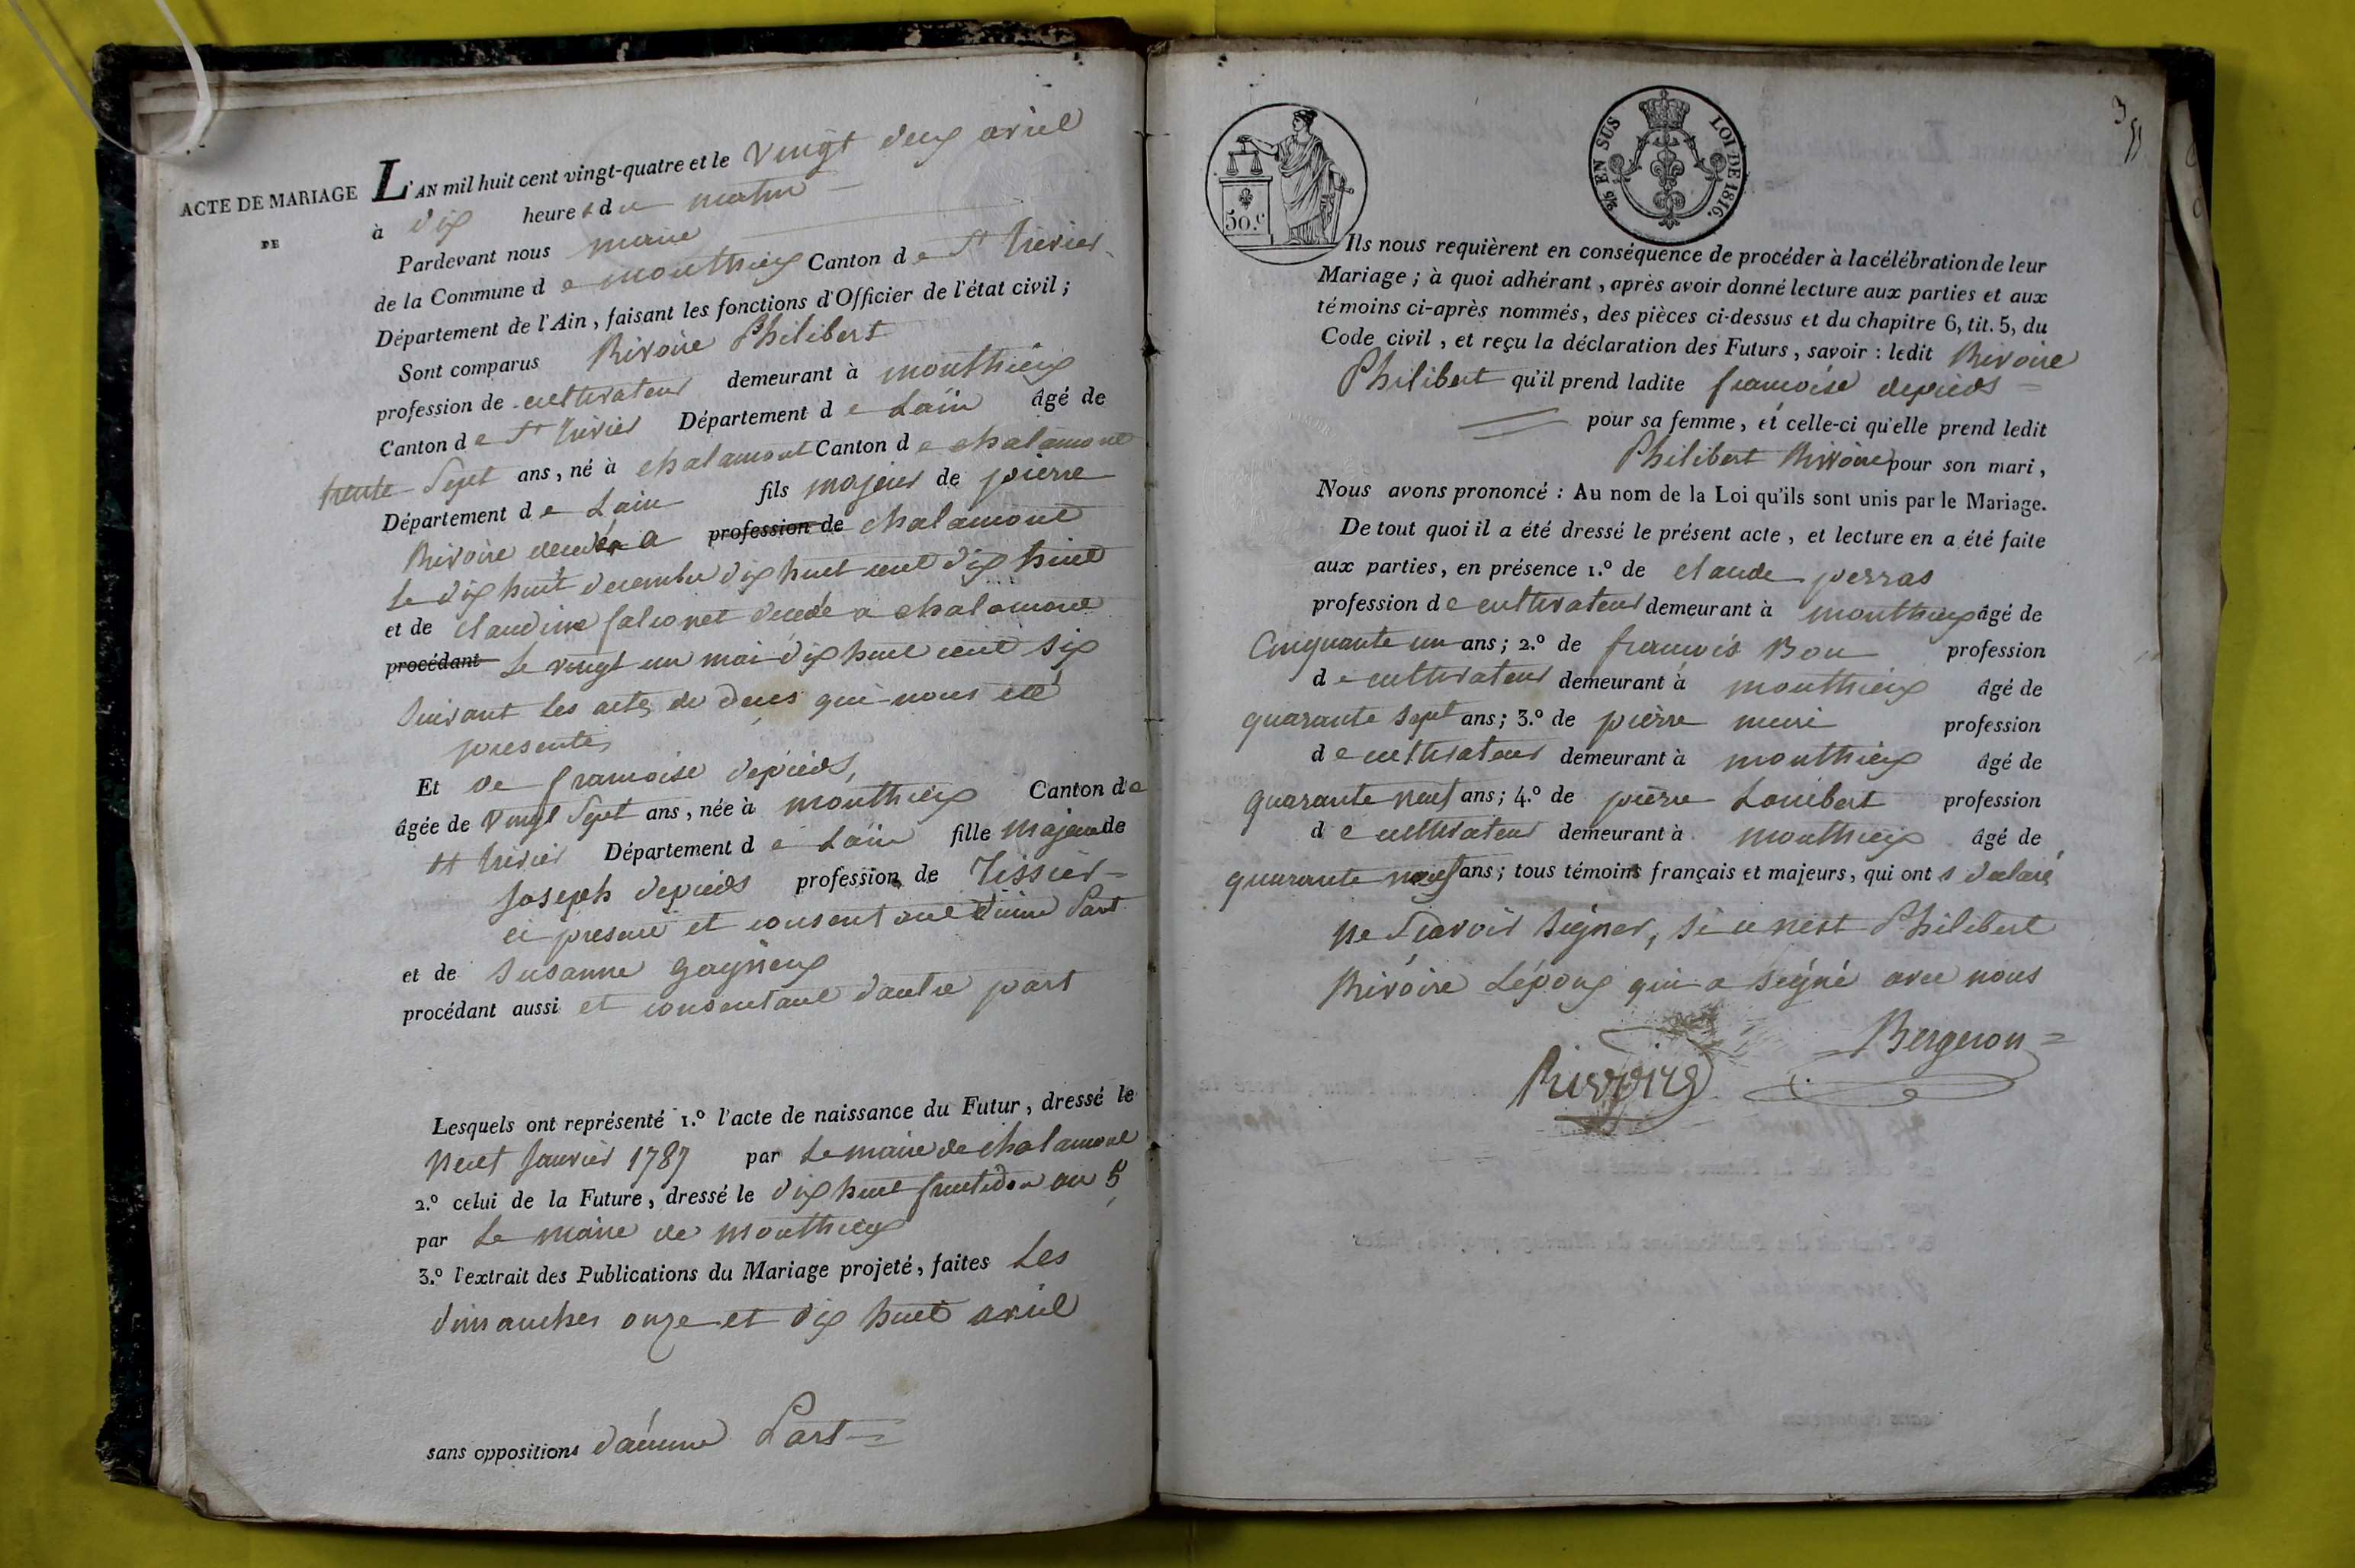 ACTE DE MARIAGE
DE
L'AN mil huit cent vingt-quatre et le vingt deux avril
à dix heures du matin
Pardevant nous maire
de la Commune de monthieux Canton de St trivier
Département de l'Ain, faisant les fonctions d'Officier de l'état civil;
Sont comparus Rivoire Philibert
profession de cultivateur demeurant à monthieux
Canton de St trivier Département de Lain âgé de
trente Sept ans, né à chalamont Canton de chalamont
Département de Lain fils majeur de pierre
Rivoire decedé a profession de chalamont
Le dix huit decembre dix huit cent dix huit
et de claudine falconet decedé a chalamont
procédant Le vingt un mai dix huit cent six
Suivant les actes de deces qui nous été
presentes
Et de francoise depieds,
âgée de vingt Sept ans, née à monthieux Canton de
St trivier Département de Lain fille majeur de
Joseph depieds profession de Tissier =
ci present et consentant d'une Part
et de Susanne gagnieux
procédant aussi et consentant d'autre part
Lesquels ont représenté 1.º l'acte de naissance du Futur, dressé le
neuf Janvier 1787 par Le maire de chalamont
2.º celui de la Future, dressé le dix huit fructidor an 5
par Le maire de monthieux
3.º l'extrait des Publications du Mariage projeté, faites Les
dimanches onze et dix huit avril
sans oppositions d'aucune Part =
50.c
2/5 EN SUS LOI DE 1816.
35
Ils nous requièrent en conséquence de procéder à la célébration de leur
Mariage; à quoi adhérant, après avoir donné lecture aux parties et aux
témoins ci-après nommés, des pièces ci-dessus et du chapitre 6, tit. 5, du
Code civil, et reçu la déclaration des Futurs, savoir: ledit Rivoire
Philibert qu'il prend ladite francoise depieds =
pour sa femme, et celle-ci qu'elle prend ledit
Philibert Rivoire pour son mari,
Nous avons prononcé: Au nom de la Loi qu'ils sont unis par le Mariage.
De tout quoi il a été dressé le présent acte, et lecture en a été faite
aux parties, en présence 1.º de claude perras
profession de cultivateur demeurant à monthieux âgé de
Cinquante un ans; 2.º de francois Bon profession
de cultivateur demeurant à monthieux âgé de
quarante sept ans; 3.º de pierre profession
de cultivateur demeurant à monthieux âgé de
quarante neuf ans; 4.º de pierre Louibert profession
de cultivateur demeurant à monthieux âgé de
quarante neuf ans; tous témoins français et majeurs, qui ont declaré
ne Scavoir Signer, Si ce nest Philibert
Rivoire Lépoux qui a Signé avec nous
Bergeron =
Rivoire